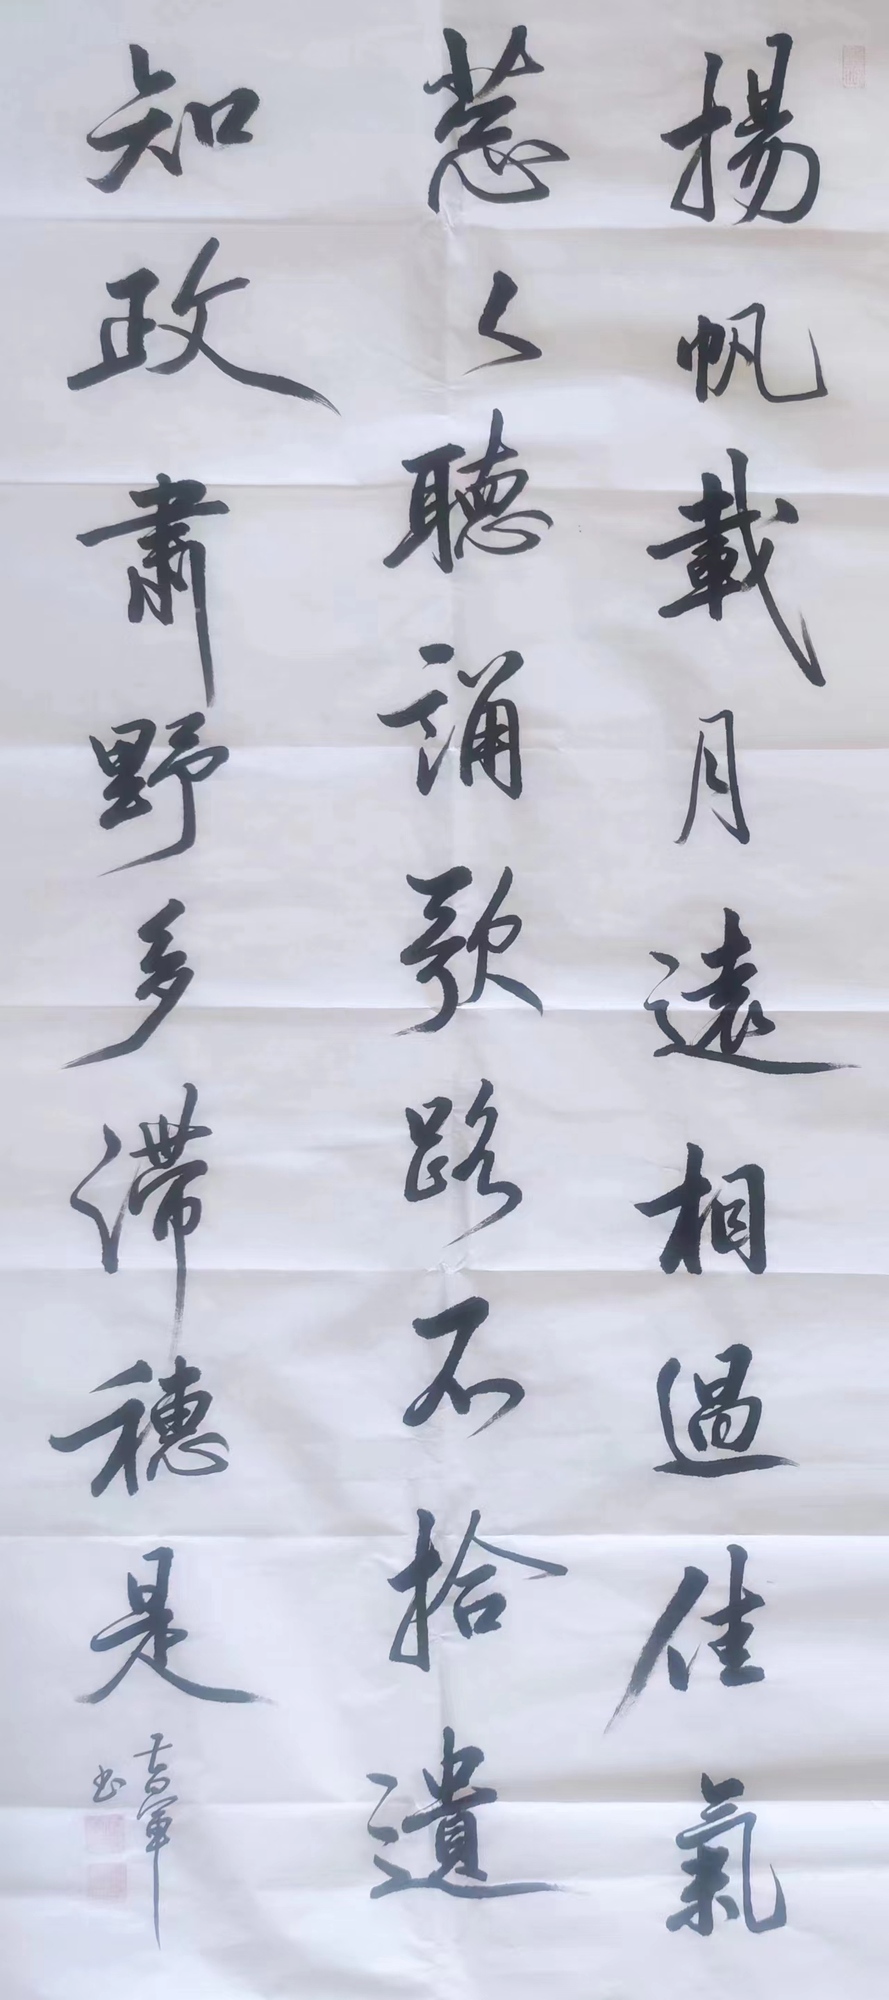 揚帆載月遠相過佳氣
蔥々聽誦歌路不拾遺
知政肅野多滯穗是
書